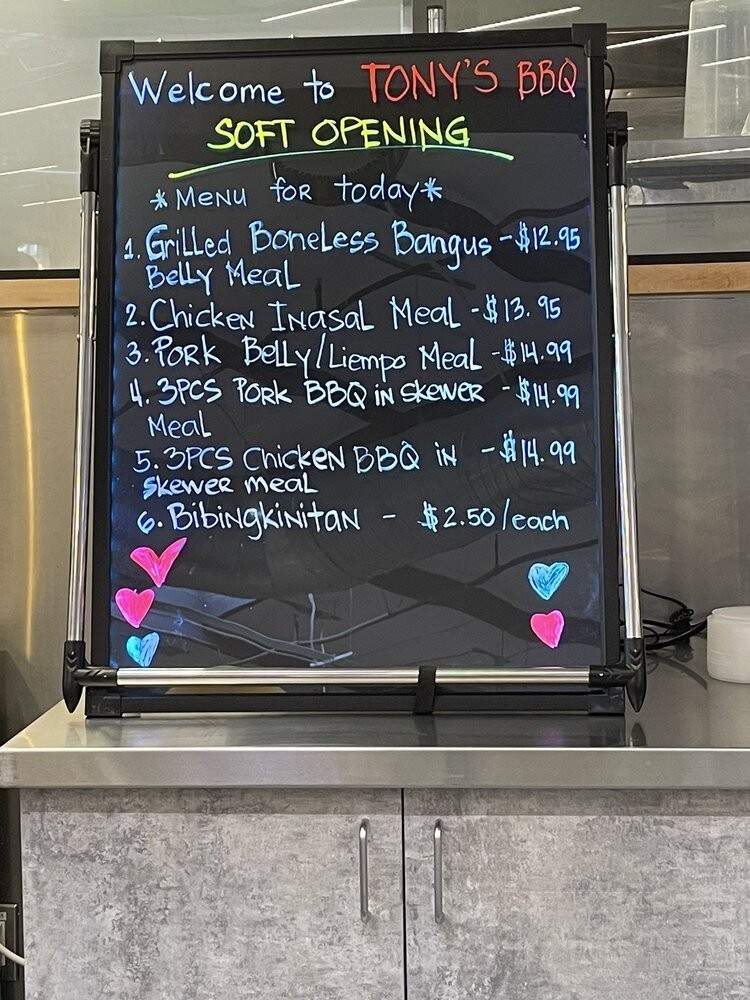 Welcome to TONY'S BBQ
SOFT OPENING
*Menu for today*
1. Grilled Boneless Bangus - $12.95
Belly Meal
2. Chicken Inasal Meal - $13.95
3. Pork Belly/Liempo Meal - $14.99
4. 3PCS Pork BBQ in skewer - $14.99
Meal
5. 3PCS Chicken BBQ in - $14.99
skewer meal
6. Bibingkinitan - $2.50/each